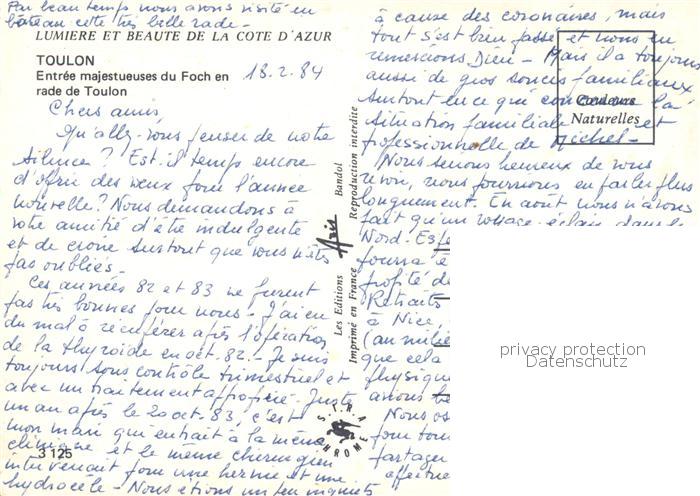 Par beau temps nous avons visité en
bateau cette très belle rade -
LUMIERE ET BEAUTE DE LA COTE D'AZUR
TOULON
Entrée majestueuses du Foch en
rade de Toulon
18.2.84
Chers amis,
Qu'allez-vous penser de notre
silence ? Est-il temps encore
d'offrir des voeux pour l'année
nouvelle ? Nous demandons à
votre amitié d'être indulgente
et de croire surtout que vous n'êtes
pas oubliés -
Ces années 82 et 83 ne furent
pas très bonnes pour nous - J'ai eu
du mal à récupérer après l'opération
de la thyroïde en oct. 82 - Je suis
toujours sous contrôle trimestriel et
avec un traitement approprié. Juste
un an après le 20 oct. 83, c'est
mon mari qui entrait à la même
clinique et le même chirurgien
3 125
intervenait pour une hernie et une
hydrocèle - Nous étions un peu inquiets
Les Editions Azis Bandol
Imprimé en France Reproduction interdite
S.T.R.A.
CHROME
à cause des coronaires, mais
tout s'est bien passé et nous en
remercions Dieu - Mais il a toujours
aussi de gros soucis familiaux
surtout en ce qui concerne la
Couleurs
Naturelles
situation familiale et
professionnelle de Michel -
Nous serions heureux de vous
revoir, nous pourrions en parler plus
longuement. En août nous n'avons
fait qu'un voyage éclair dans le
Nord.
pourra
profité de
Retraités
à Nice
(au milieu
que cela
physique
avons
Nous
pour
partager
privacy protection
Datenschutz